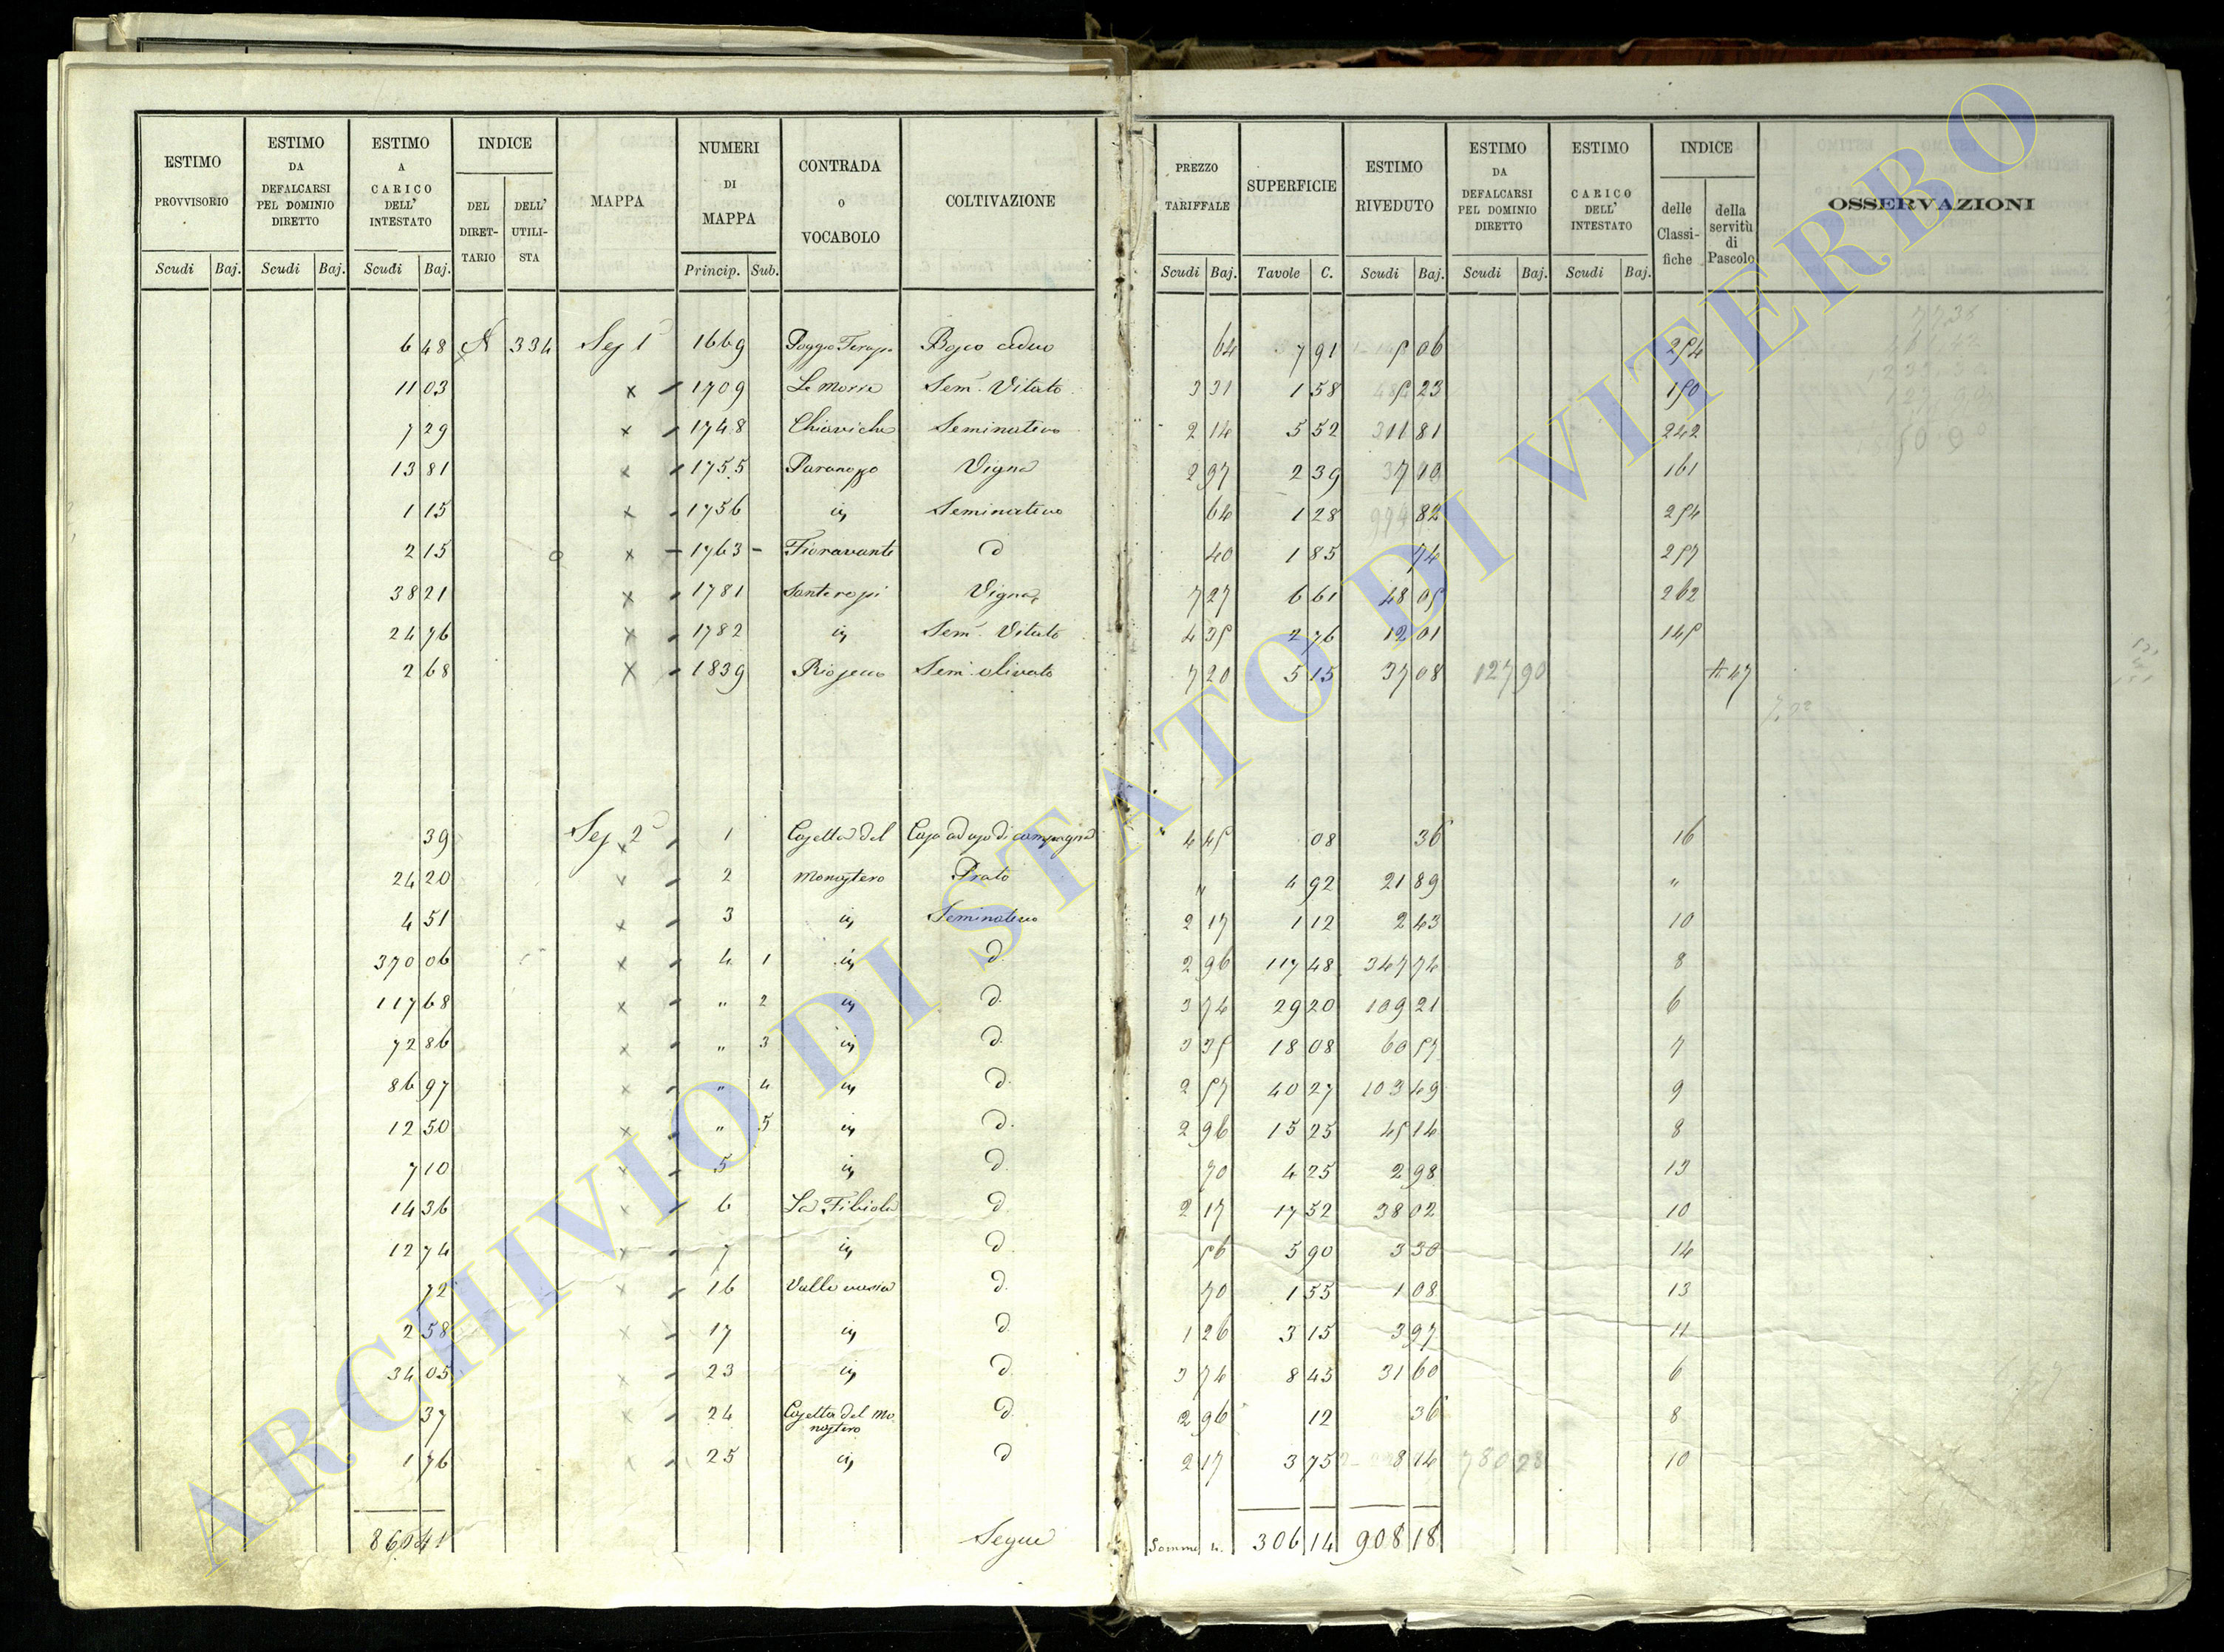 ESTIMO PROVVISORIO | ESTIMO DA DEFALCARSI PEL DOMINIO DIRETTO | ESTIMO A CARICO DELL' INTESTATO | INDICE DEL DIRET-TARIO | DELL' UTILI-STA | MAPPA | NUMERI DI MAPPA | CONTRADA o VOCABOLO | COLTIVAZIONE | PREZZO TARIFFALE | SUPERFICIE | ESTIMO RIVEDUTO | ESTIMO DA DEFALCARSI PEL DOMINIO DIRETTO | ESTIMO CARICO DELL' INTESTATO | INDICE delle Classi-fiche | della servitù di Pascolo | OSSERVAZIONI
Scudi Baj. | Scudi Baj. | Scudi Baj. | Princip. Sub. | Scudi Baj. | Tavole C. | Scudi Baj. | Scudi Baj. | Scudi Baj.
6 48 334 Sez 1ª 1669 Bosco ceduo 64 7 91 5 06 254
11 03 x 1709 Sem. Vitato 3 31 1 58 5 23 150
7 29 x 1748 Chiaviche Seminativo 2 14 5 52 11 81 242
13 81 x 1755 Vigna 2 97 2 39 7 10 161
1 15 x 1756 ivi Seminativo 64 1 28 82 254
2 15 x 1763 Fioravante d 40 1 85 74 257
38 21 x 1781 Vigna 7 27 6 61 48 05 262
24 76 x 1782 ivi Sem. Vitato 4 35 2 76 12 01 145
2 68 x 1839 Riosecco Sem. olivato 7 20 5 15 37 08 127 90 47
39 Sez 2ª x 1 Casetta del Casa ad uso di campagna 4 45 08 36 16
24 20 x 2 Monastero Prato " 4 92 21 89 "
4 51 x 3 ivi Seminativo 2 17 1 12 2 43 10
370 06 x 4 1 ivi d. 2 96 117 48 347 74 8
117 68 x " 2 ivi d. 3 74 29 20 109 21 6
72 86 x " 3 ivi d. 3 35 18 08 60 57 7
86 97 x " 4 ivi d. 2 57 40 27 103 49 9
12 50 x " 5 ivi d. 2 96 15 25 45 14 8
7 10 x 5 ivi d 70 4 25 2 98 13
14 36 x 6 La Fibiola d 2 17 17 52 38 02 10
12 74 x 7 ivi d. 56 5 90 3 30 14
72 x 16 d. 70 1 55 1 08 13
2 58 x 17 ivi d. 1 26 3 15 3 97 11
34 05 x 23 ivi d. 3 74 8 45 31 60 6
37 x 24 Casetta del Monastero d. 2 96 12 36 8
1 76 x 25 ivi d 2 17 3 75 8 14 780 28 10
860 41 Segue Somma 306 14 908 18
ARCHIVIO DI STATO DI VITERBO